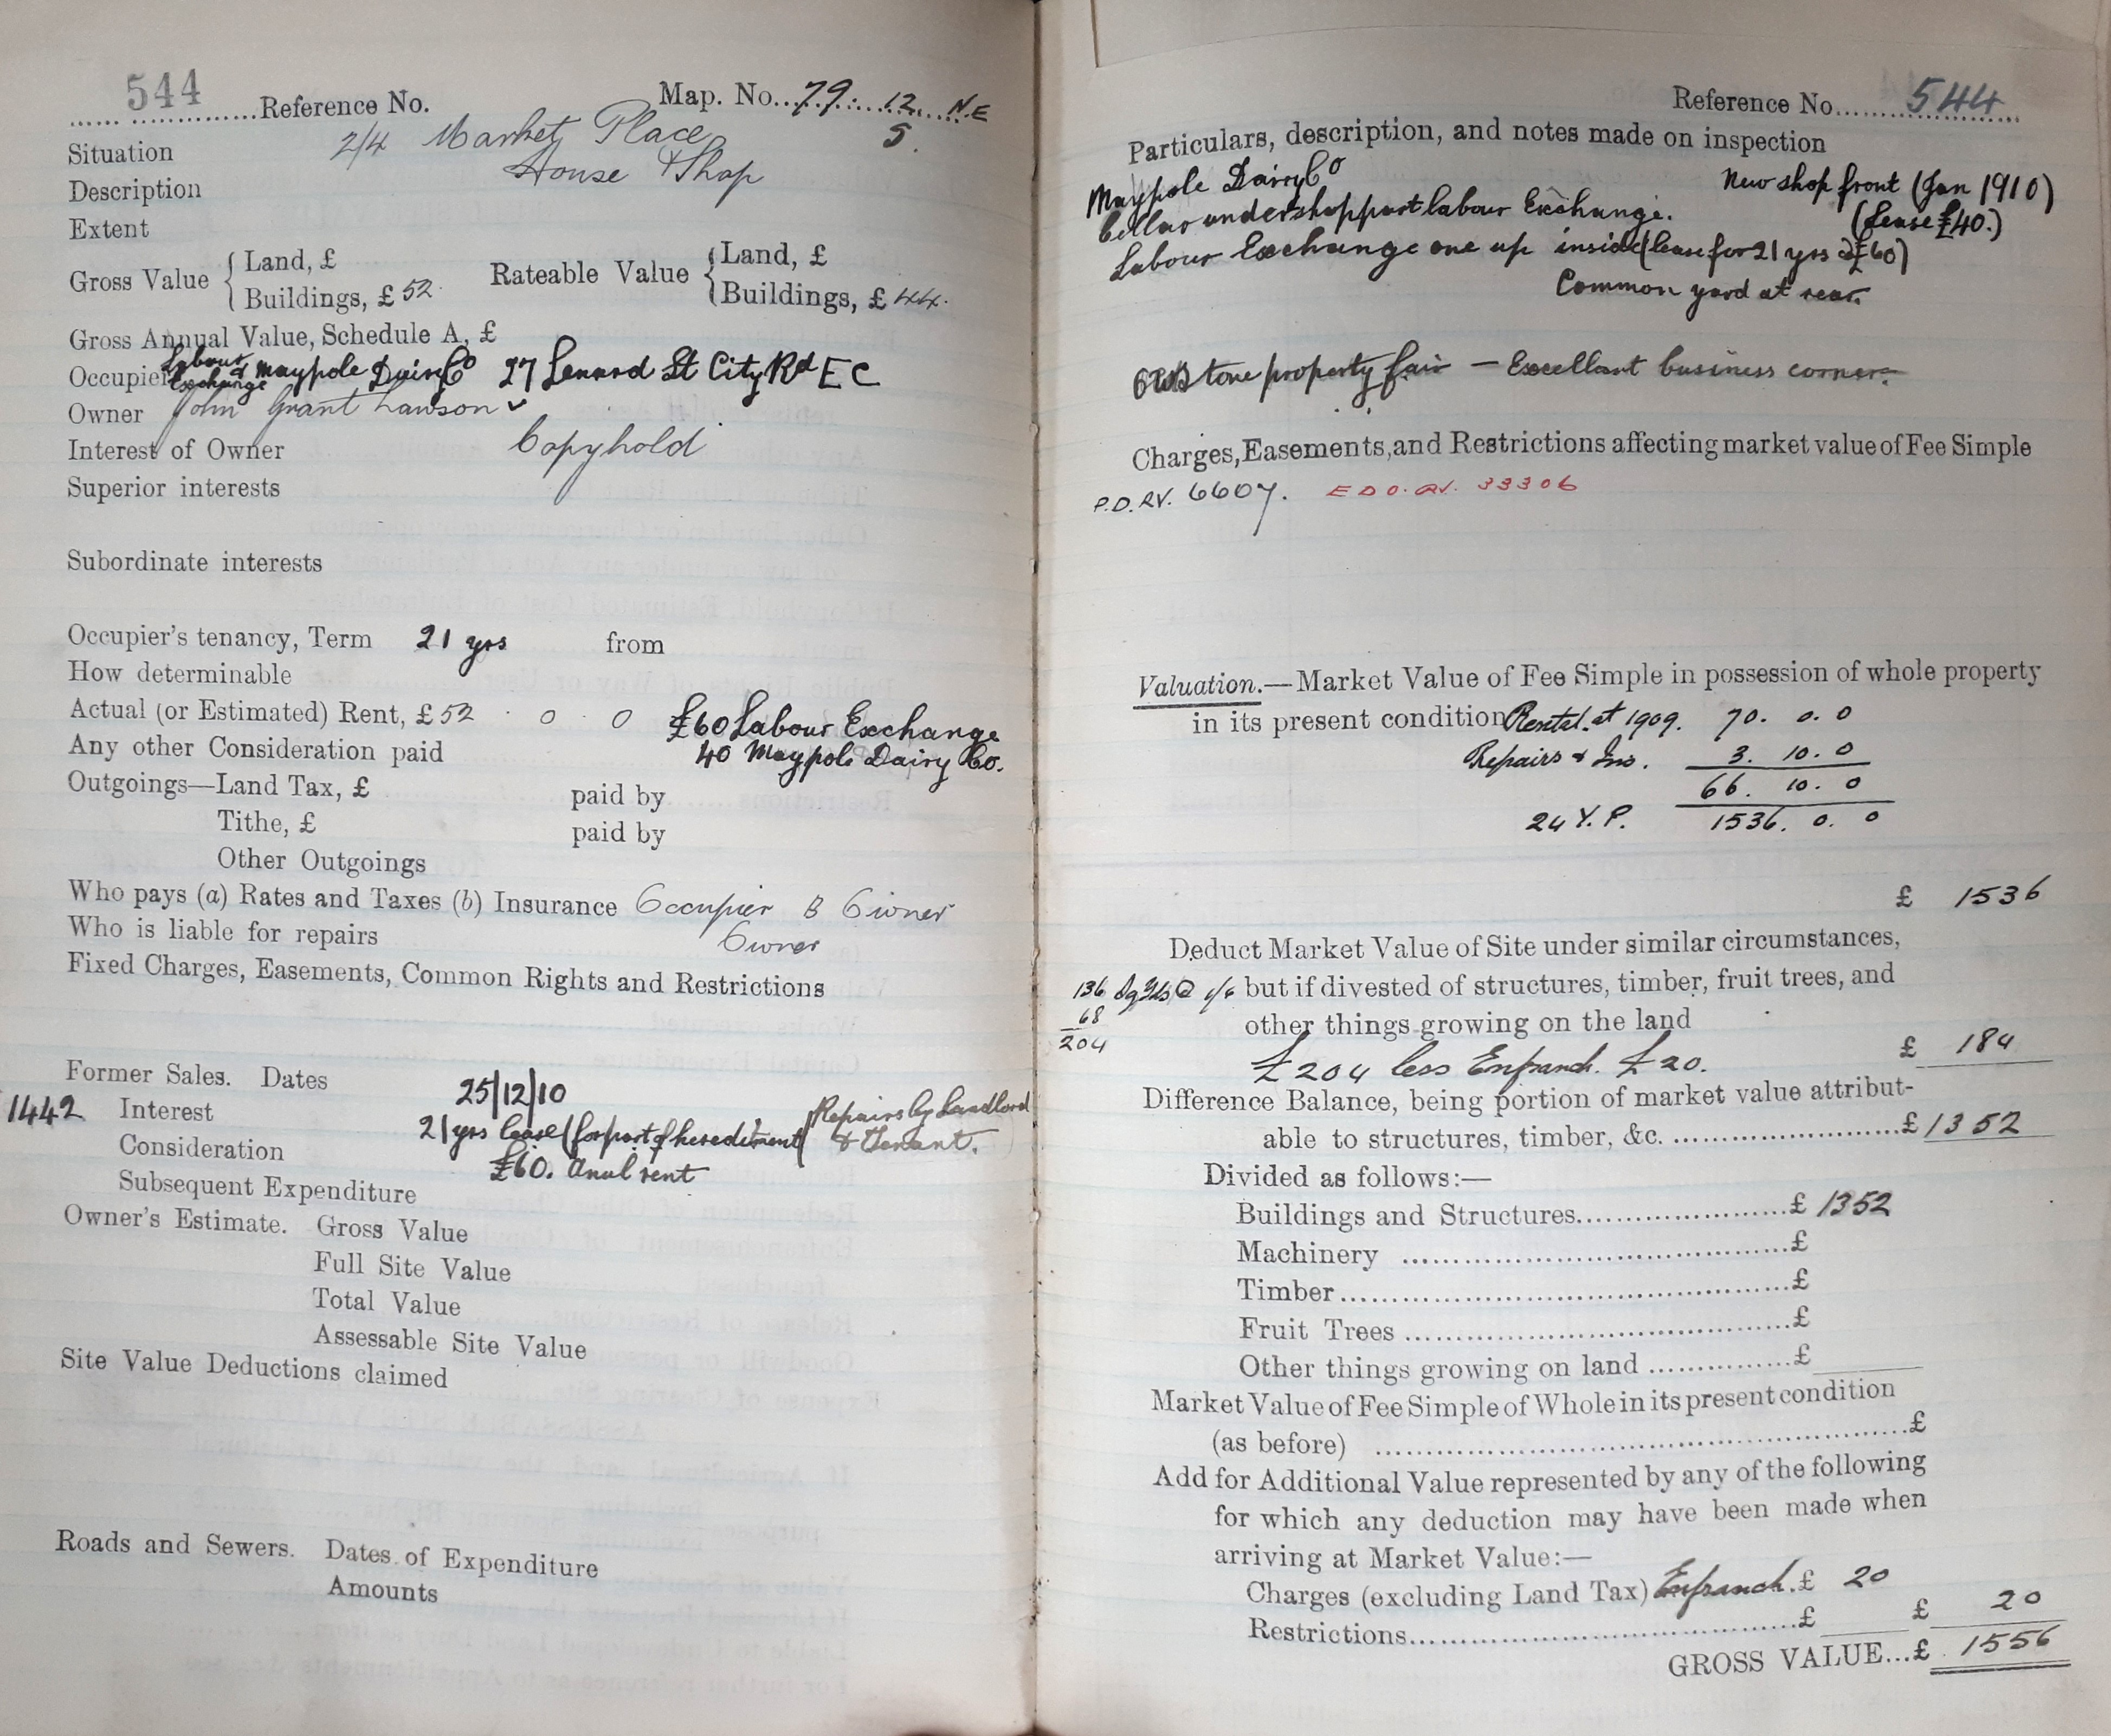 544 Reference No. Map. No. 79. 12. N.E
5.
Situation 2/4 Market Place
Description House & Shop
Extent
Gross Value { Land, £ Rateable Value { Land, £
Buildings, £ 52. Buildings, £ 44.
Gross Annual Value, Schedule A, £
Occupier Labour Exchange & Maypole Dairy Co 27 Lenard St City Rd E C
Owner John Grant Lawson
Interest of Owner Copyhold
Superior interests
Subordinate interests
Occupier's tenancy, Term 21 yrs from
How determinable
Actual (or Estimated) Rent, £ 52 . 0 . 0 £60 Labour Exchange
Any other Consideration paid 40 Maypole Dairy Co.
Outgoings—Land Tax, £ paid by
Tithe, £ paid by
Other Outgoings
Who pays (a) Rates and Taxes (b) Insurance Occupier B Owner
Who is liable for repairs Owner
Fixed Charges, Easements, Common Rights and Restrictions
Former Sales. Dates 25/12/10
1442 Interest 21 yrs lease (for part of herediment) Repairs by Landlord & Tenant.
Consideration £60. Anul rent
Subsequent Expenditure
Owner's Estimate. Gross Value
Full Site Value
Total Value
Assessable Site Value
Site Value Deductions claimed
Roads and Sewers. Dates of Expenditure
Amounts
Reference No. 544
Particulars, description, and notes made on inspection
Maypole Dairy Co New shop front (Jan 1910)
Cellar under shop part labour Exchange. (Lease £40.)
Labour Exchange one up inside (lease for 21 yrs @ £60)
Common yard at rear.
stone property fair — Excellent business corner.
Charges, Easements, and Restrictions affecting market value of Fee Simple
P.D. RV. 6607. E D O. RV. 33306
Valuation.—Market Value of Fee Simple in possession of whole property
in its present condition Rental at 1909. 70. 0. 0
Repairs & Ins. 3. 10. 0
66. 10. 0
24 Y.P. 1536. 0. 0
£ 1536
Deduct Market Value of Site under similar circumstances,
136 Sq Yds @ 1/6 but if divested of structures, timber, fruit trees, and
68
204 other things growing on the land
£204 less Enfranch. £20. £ 184
Difference Balance, being portion of market value attribut-
able to structures, timber, &c. £ 1352
Divided as follows:—
Buildings and Structures £ 1352
Machinery £
Timber £
Fruit Trees £
Other things growing on land £
Market Value of Fee Simple of Whole in its present condition
(as before) £
Add for Additional Value represented by any of the following
for which any deduction may have been made when
arriving at Market Value:—
Charges (excluding Land Tax) Enfranch. £ 20
Restrictions £ £ 20
GROSS VALUE...£ 1556